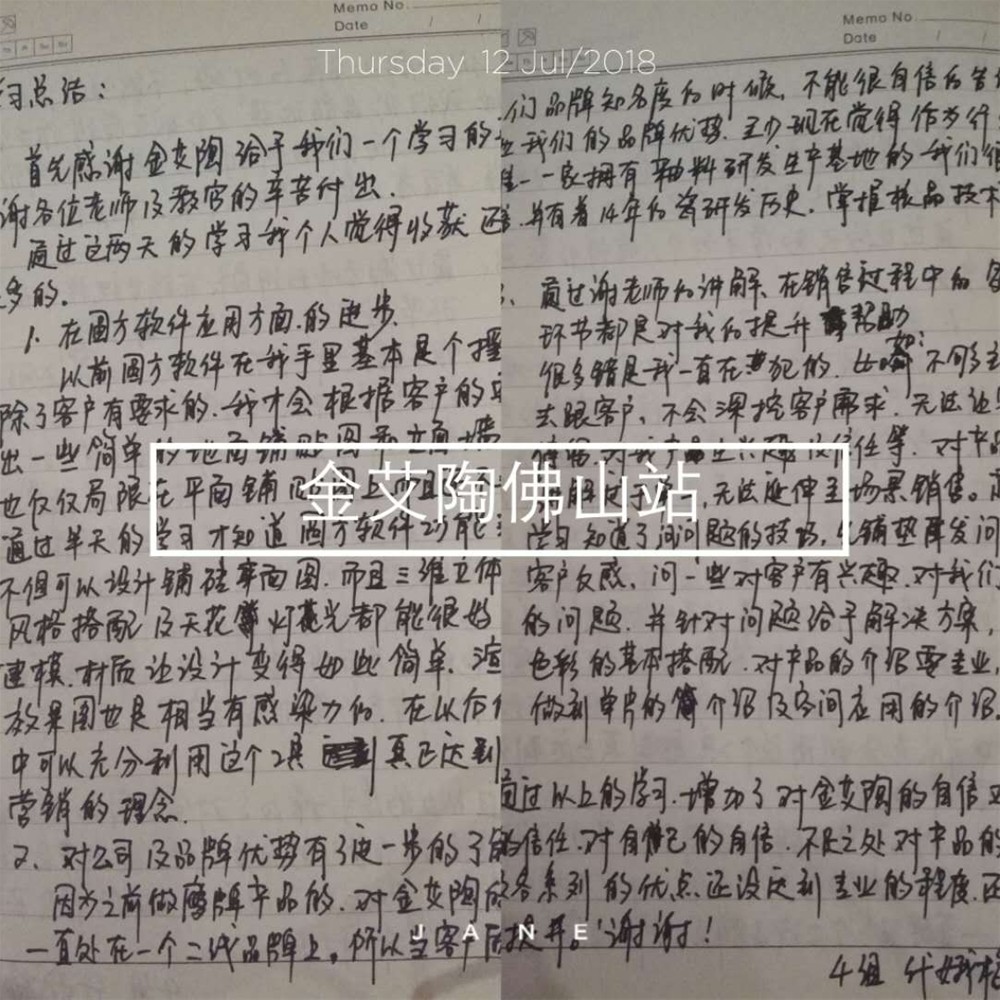 Memo No.
Date / /
Thursday 12 Jul/2018
习总结：
首先感谢金艾陶给予我们一个学习的
谢各位老师及教官的辛苦付出．
通过这两天的学习我个人觉得收获还
多的．
1. 在圆方软件应用方面的进步．
以前圆方软件在我手里基本是个摆
除了客户有要求的．我才会根据客户的
出一些简单的地面铺贴图和立面墙
也仅仅局限在平面铺
通过半天的学习才知道圆方软件功能
不但可以设计铺砖平面图．而且三维立体
风格搭配及天花灯光都能很好
建模．材质让设计变得如此简单．渲
效果图也是相当有感染力的．在以后
中可以充分利用这个工具 真正达到
营销的理念．
2、对公司及品牌优势有了进一步的了
因为之前做磨牌产品的．对金艾陶
一直处在一个二线品牌上。所以当客户
Memo No.
Date / /
们品牌知名度的时候．不能很自信的告
我们的品牌优势．至少现在觉得作为行
唯一一家拥有釉料研发生产基地的我们
并有着14年的研发历史．掌握核品技术
通过谢老师的讲解、在销售过程中的
环节都是对我的提升 帮助
很多错是我一直在犯的．如：不够主
去跟客户、不会深挖客户需求．无法让
信任等．对产品
无法延伸至场景销售。
学习知道了问问题的技巧，先铺垫再发问
客户反感．问一些对客户有兴趣．对我们
的问题．并针对问题给予解决方案，
色彩的基本搭配．对产品的介绍要专业
做到单片的介绍及空间应用的介绍
通过以上的学习．增加了对金艾陶的自信
的信任．对自己的自信．不足之处对产品的
各系列的优点还没达到专业的程度．还
提升。谢谢！
4组
金艾陶佛山站
JANE